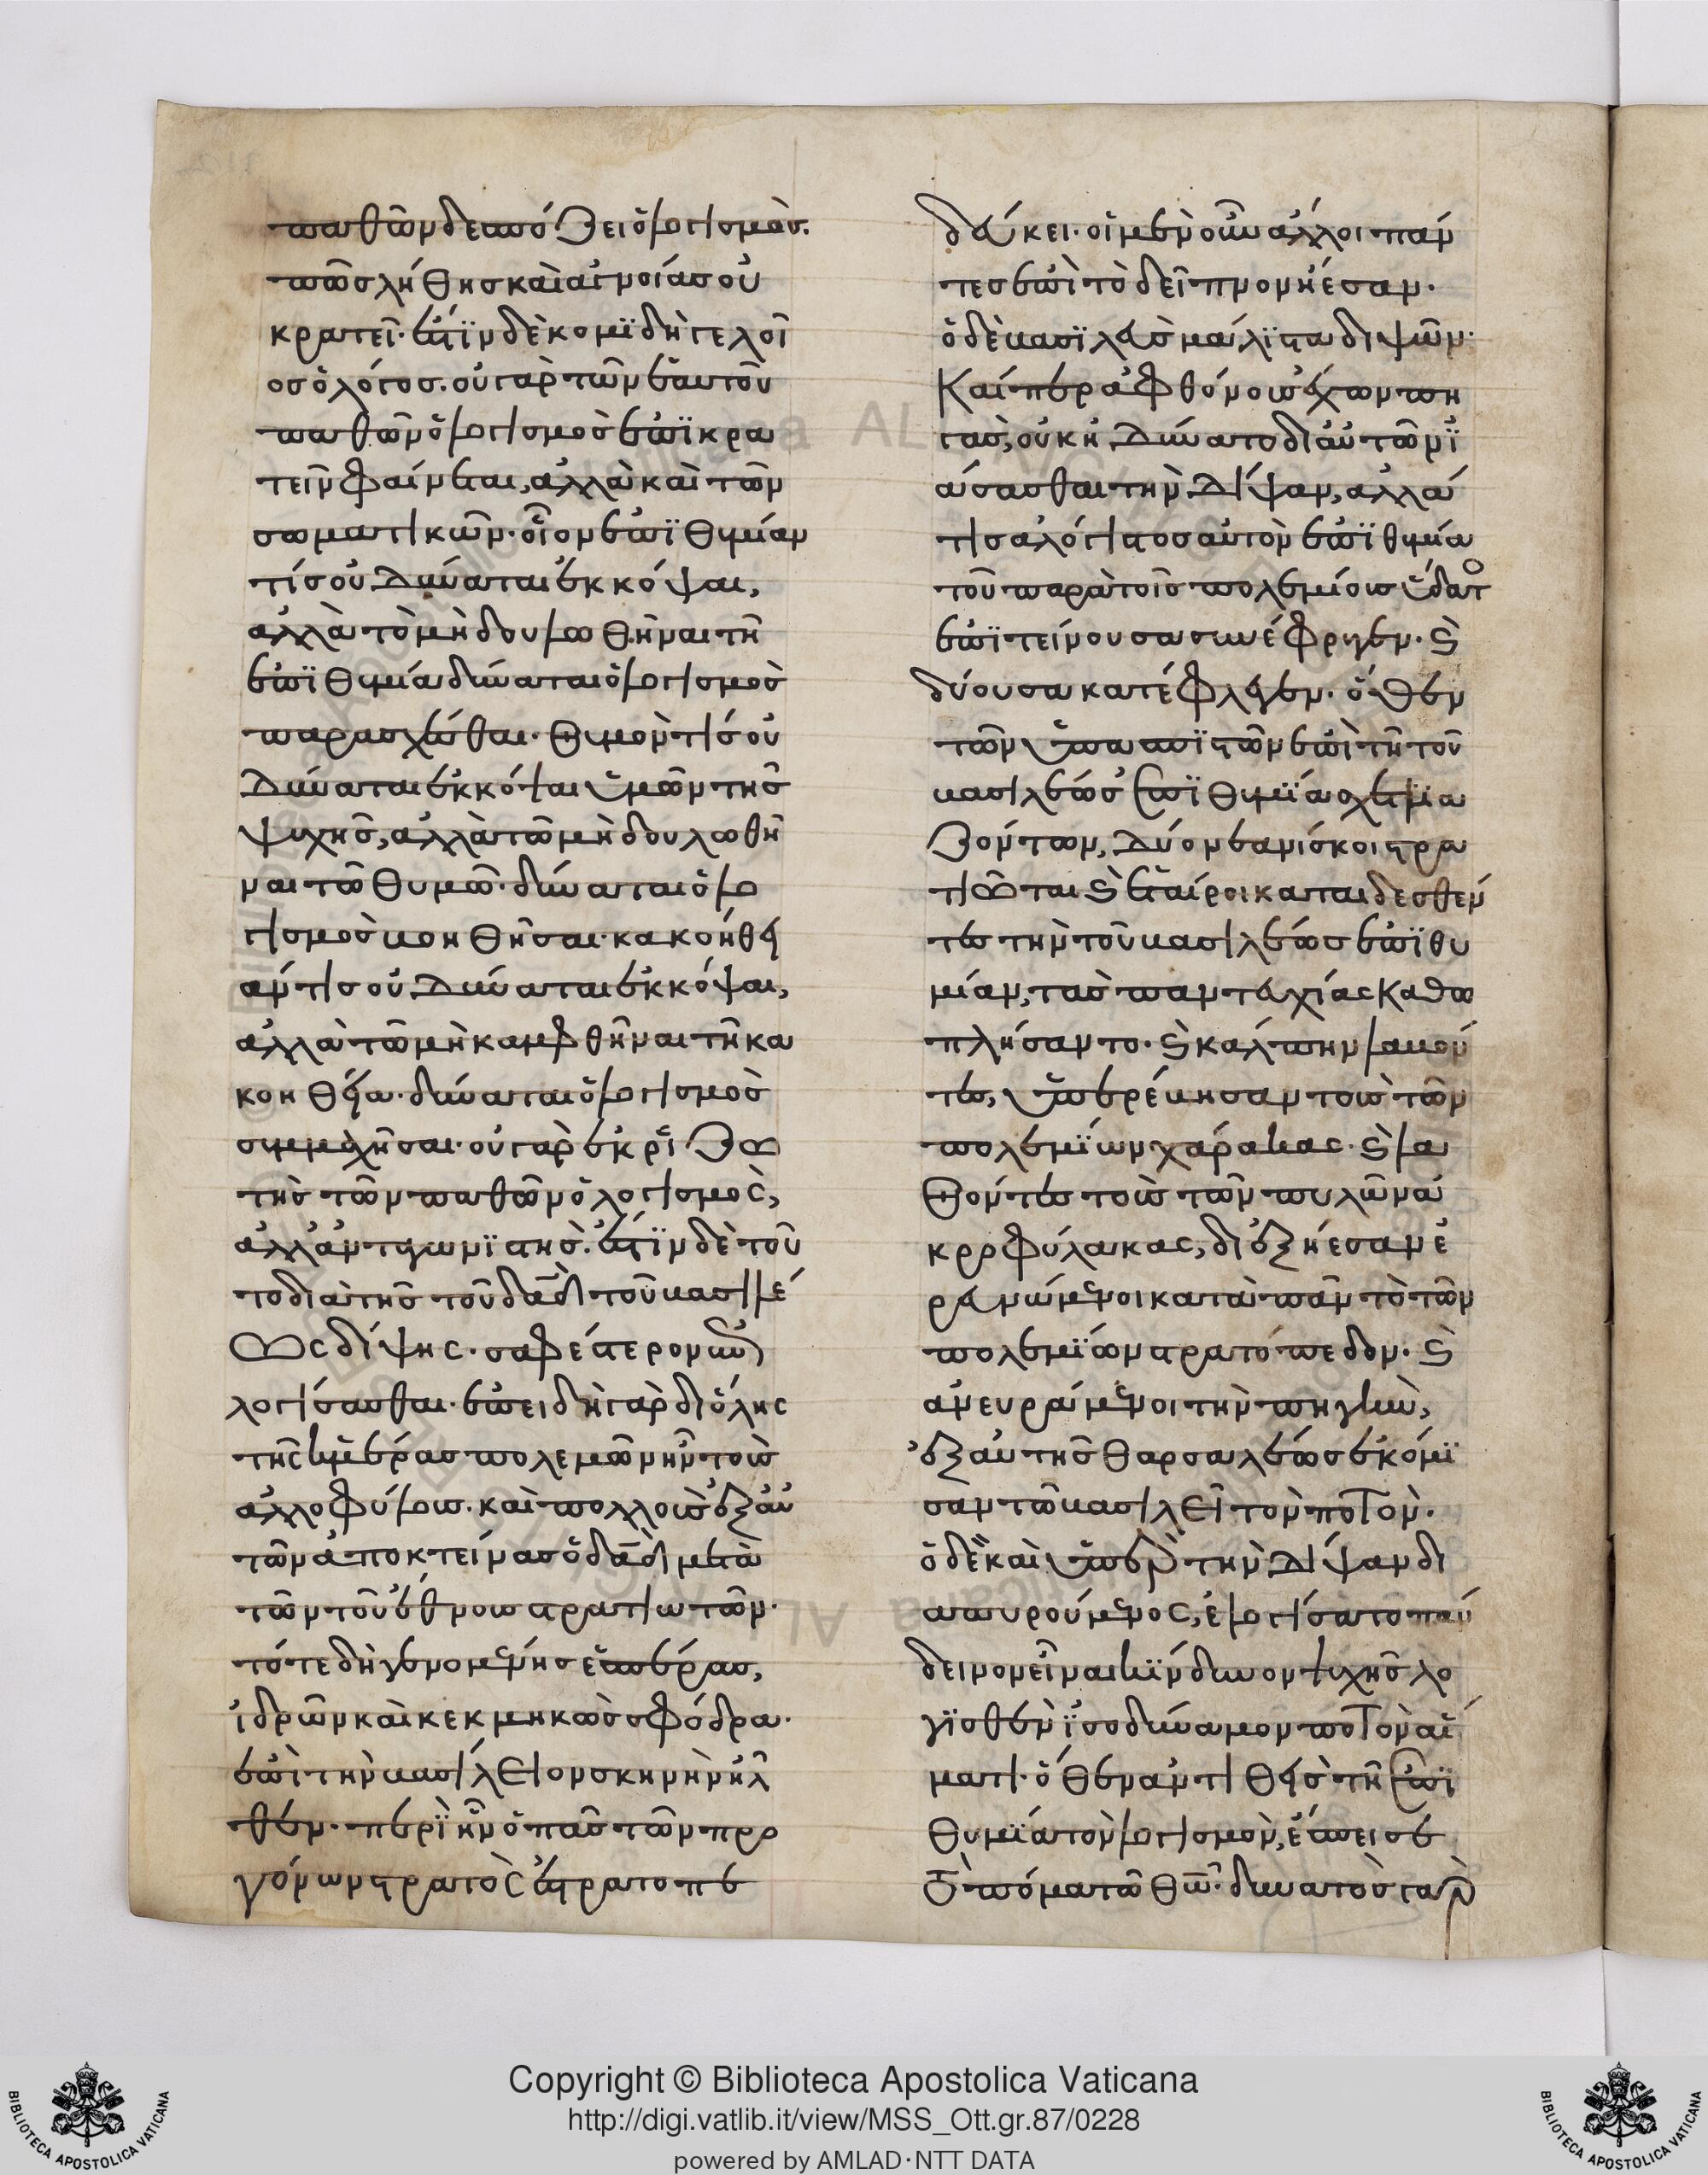 παθῶν δεσπόζει ὁ λογισμὸς.
πῶς λήθης καὶ ἀγνοίας οὐ
κρατεῖ. ἔστιν δὲ κομϊδῆ γελοῖ
ος ὁ λόγος. οὐ γὰρ τῶν ἑαυτοῦ
παθῶν ὁ λογισμὸς ἐπϊκρα
τεῖν φαίνεται, ἀλλὰ καὶ τῶν
σωματικῶν. οἷον ἐπϊθυμίαν
τίς οὐ δύναται ἐκκόψαι,
ἀλλὰ τὸ μὴ δουλωθῆναι τῆ
ἐπϊθυμία δύναται ὁ λογισμὸς
παρασχέσθαι. θυμόν τίς οὐ
δύναται ἐκκόψαι ὑμῶν τῆς
ψυχῆς, ἀλλὰ τῶ μὴ δουλωθῆ
ναι τῶ θυμῶ. δύναται ὁ λο
γισμὸς βοηθῆσαι. κακοήθει
άν τις οὐ δύναται ἐκκόψαι,
ἀλλὰ τῶ μὴ καμφθῆναι τῆ κα
κοηθεία. δύναται ὁ λογισμὸς
συμμαχῆσαι. οὐ γὰρ ἐκρϊζω
τὴς τῶν παθῶν ὁ λογισμὸς,
ἀλλ' ἀνταγωνϊστὴς. ἔστϊν δὲ τοῦ
το διὰ τῆς τοῦ δᾱδ τοῦ βασιλέ
ως δίψης. σαφέστερον ἀν
λογίσασθαι. ἐπειδὴ γὰρ δι' ὅλης
τῆς ἡμέρας πολεμῶν ἦν τοῖς
ἀλλοφύλοις. καὶ πολλοὺς ἐξ αὐ
τῶν ἀποκτείνας ὁ δᾱδ μετὰ
τῶν τοῦ ἔθνους στρατιωτῶν.
τότε δὴ γενομένης ἑσπέρας,
ἱδρῶν καὶ κεκμηκὼς σφόδρα.
ἐπὶ τὴν βασίλειον σκηνὴν ἦλ
θεν. περὶ ἣν ὁ πᾶς τῶν προ
γόνων στρατὸς ἐστρατοπε
δεύκει. οἱ μὲν οὖν ἄλλοι πάν
τες ἐπὶ τὸ δεῖπνον ἤεσαν.
ὁ δὲ βασϊλεὺς μάλϊστα διψῶν.
καίπερ ἀφθόνους ἔχων πη
γας, οὐκ ἠδύνατο δι' αὐτῶν ϊ
άσασθαι τὴν δίψαν, ἀλλά
τις ἀλόγιστος αὐτὸν ἐπϊθυμία
τοῦ παρὰ τοῖς πολεμίοις ὕδατο
ἐπϊτείνουσα συνέφρυγεν. ϗ
λύουσα κατέφλεγεν. ὅθεν
τῶν ὑπασπϊστῶν ἐπὶ τῆ τοῦ
βασιλέως ἐπϊθυμϊά σχετλϊα
ζόντων, δύο νεανίσκοι στρα
τιῶται ϗ ἑταῖροι καταιδεσθέν
τες τὴν τοῦ βασιλέως ἐπϊθυ
μίαν, τὰς παντευχίας καθω
πλήσαντο. ϗ κάλπην λαβόν
τες, ὑπερέβησαν τοὺς τῶν
πολεμϊων χάρακας. ϗ λα
θόντες τοὺς τῶν πυλῶν ἀ
κροφύλακας, διεξήεσαν ἐ
ρευνώμενοι κατὰ πᾶν τὸ τῶν
πολεμϊων στρατόπεδον. ϗ
ἀνευράμενοι τὴν πηγὴν,
ἐξ αὐτῆς θαρσαλέως ἐκόμϊ
σαν τῶ βασιλεῖ τὸν ποτὸν.
ὁ δὲ καὶ ὑπὲρ τὴν δίψαν δι
απυρούμενος, ἐλογίσατο πάν
δεινον εἶναι κίνδυνον ψυχῆς λο
γϊσθὲν ϊσοδύναμον ποτὸν αἵ
ματι. ὅθεν ἀντιθεὶς τῆ ἐπϊ
θυμϊα τὸν λογισμὸν, ἔσπεισε
τὸ πόμα τῶ θῶ. δυνατὸς γὰρ
Copyright © Biblioteca Apostolica Vaticana
http://digi.vatlib.it/view/MSS_Ott.gr.87/0228
powered by AMLAD·NTT DATA
BIBLIOTECA APOSTOLICA VATICANA
BIBLIOTECA APOSTOLICA VATICANA